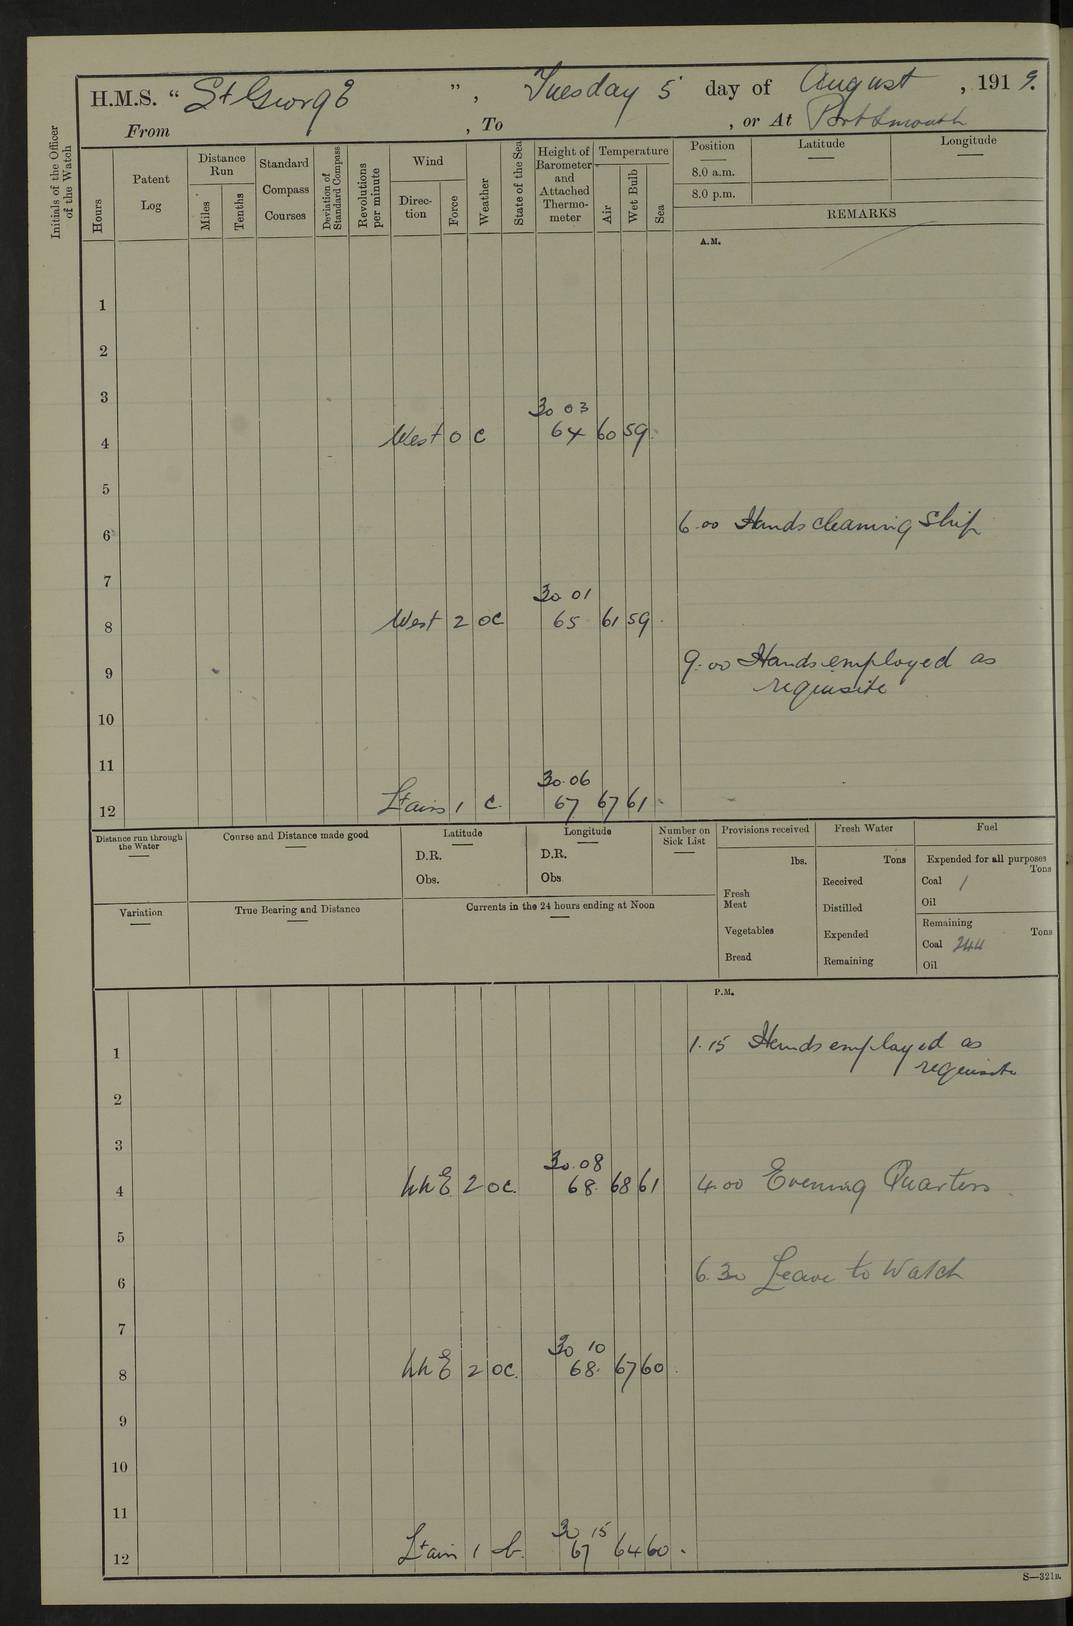 H.M.S. “ St George ”, Tuesday 5 day of August, 1919.
From , To , or At Portsmouth
Initials of the Officer of the Watch
Hours
Patent Log
Distance Run
Miles
Tenths
Standard Compass Courses
Deviation of Standard Compass
Revolutions per minute
Wind
Direction
Force
Weather
State of the Sea
Height of Barometer and Attached Thermometer
Temperature
Air
Wet Bulb
Sea
Position
8.0 a.m.
8.0 p.m.
Latitude
Longitude
REMARKS
A.M.
1
2
3
30 03
4 West 0 c 64 60 59
5
6 6.00 Hands cleaning Ship
7
30 01
8 West 2 oc 65 61 59
9 9.00 Hands employed as
requisite
10
11
30.06
12 Lt airs 1 c. 67 67 61
Distance run through the Water
Course and Distance made good
Latitude
D.R.
Obs.
Longitude
D.R.
Obs
Number on Sick List
Provisions received
lbs.
Fresh Meat
Vegetables
Bread
Fresh Water
Tons
Received
Distilled
Expended
Remaining
Fuel
Expended for all purposes
Tons
Coal 1
Oil
Remaining
Tons
Coal 244
Oil
Variation
True Bearing and Distance
Currents in the 24 hours ending at Noon
P.M.
1 1.15 Hands employed as
requisite
2
3
30.08
4 NNE 2 oc. 68. 68 61 4.00 Evening Quarters
5
6 6.30 Leave to Watch
7
30 10
8 NNE 2 oc. 68. 67 60
9
10
11
30 15
12 Lt airs 1 b. 67 64 60
S—321B.